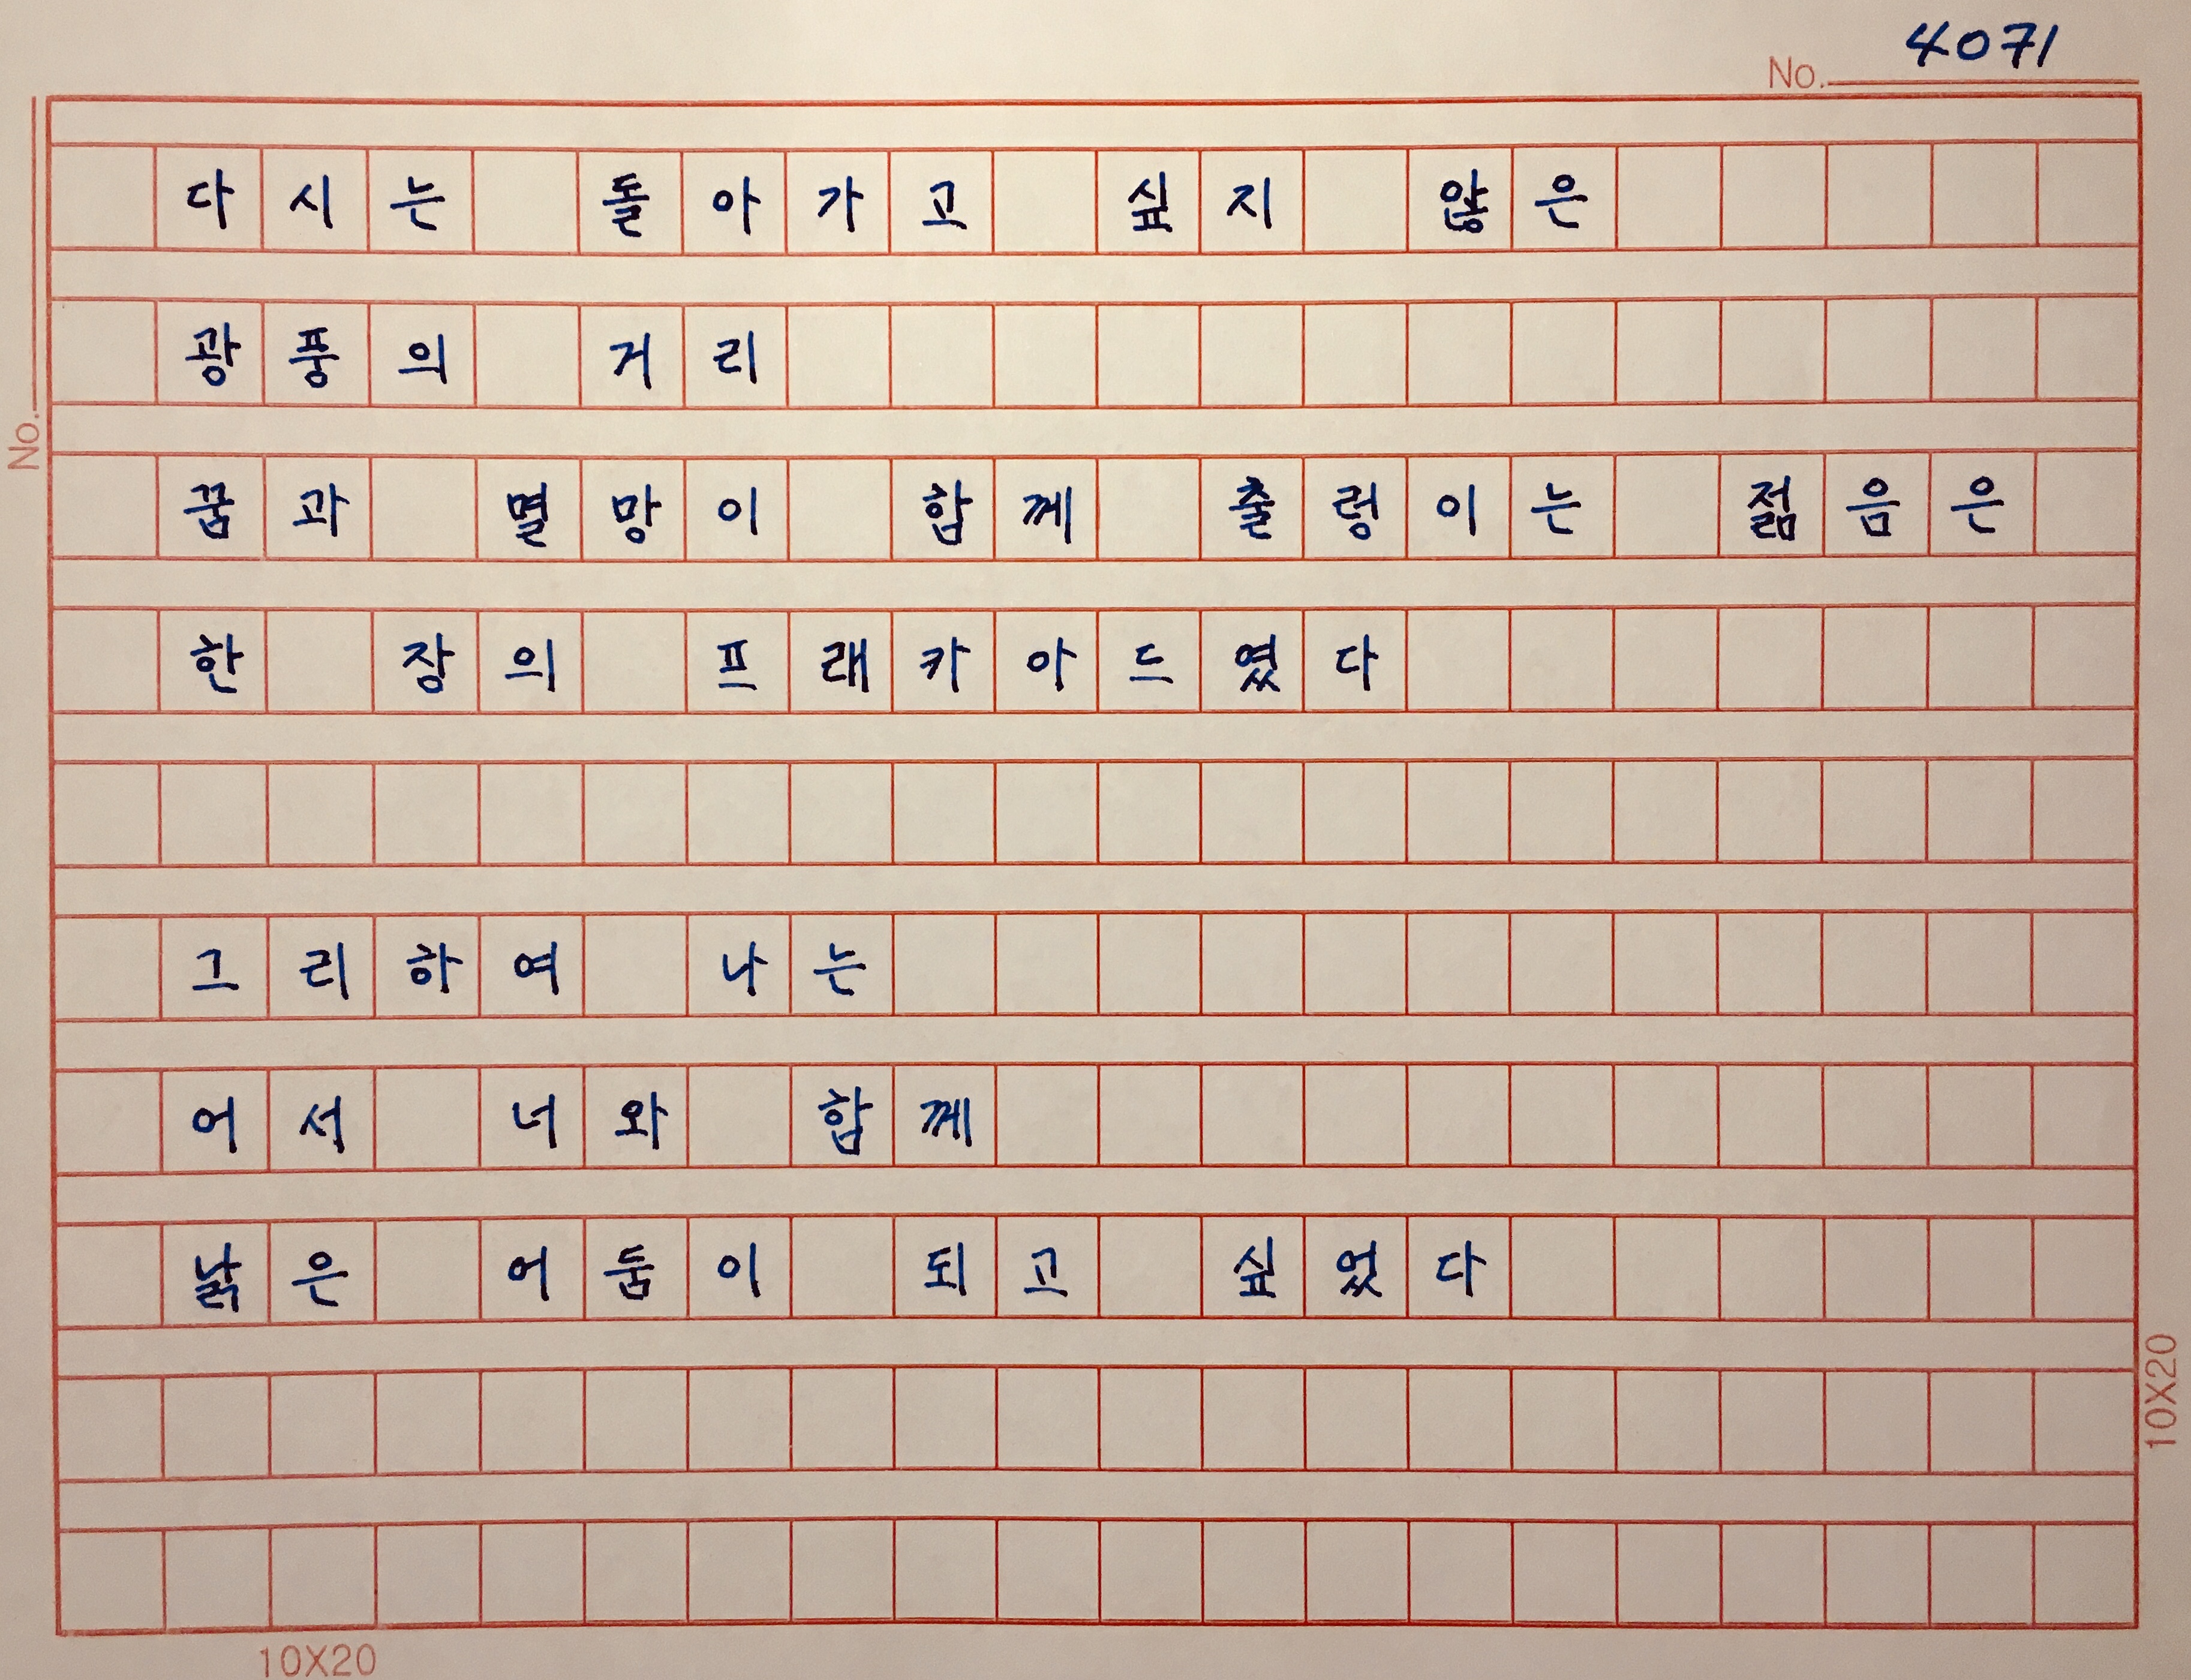 4071
No.
No.
다시는 돌아가고 싶지 않은
광풍의 거리
꿈과 멸망이 함께 출렁이는 젊음은
한 장의 프래카아드였다
그리하여 나는
어서 너와 함께
낡은 어둠이 되고 싶었다
10X20
10X20